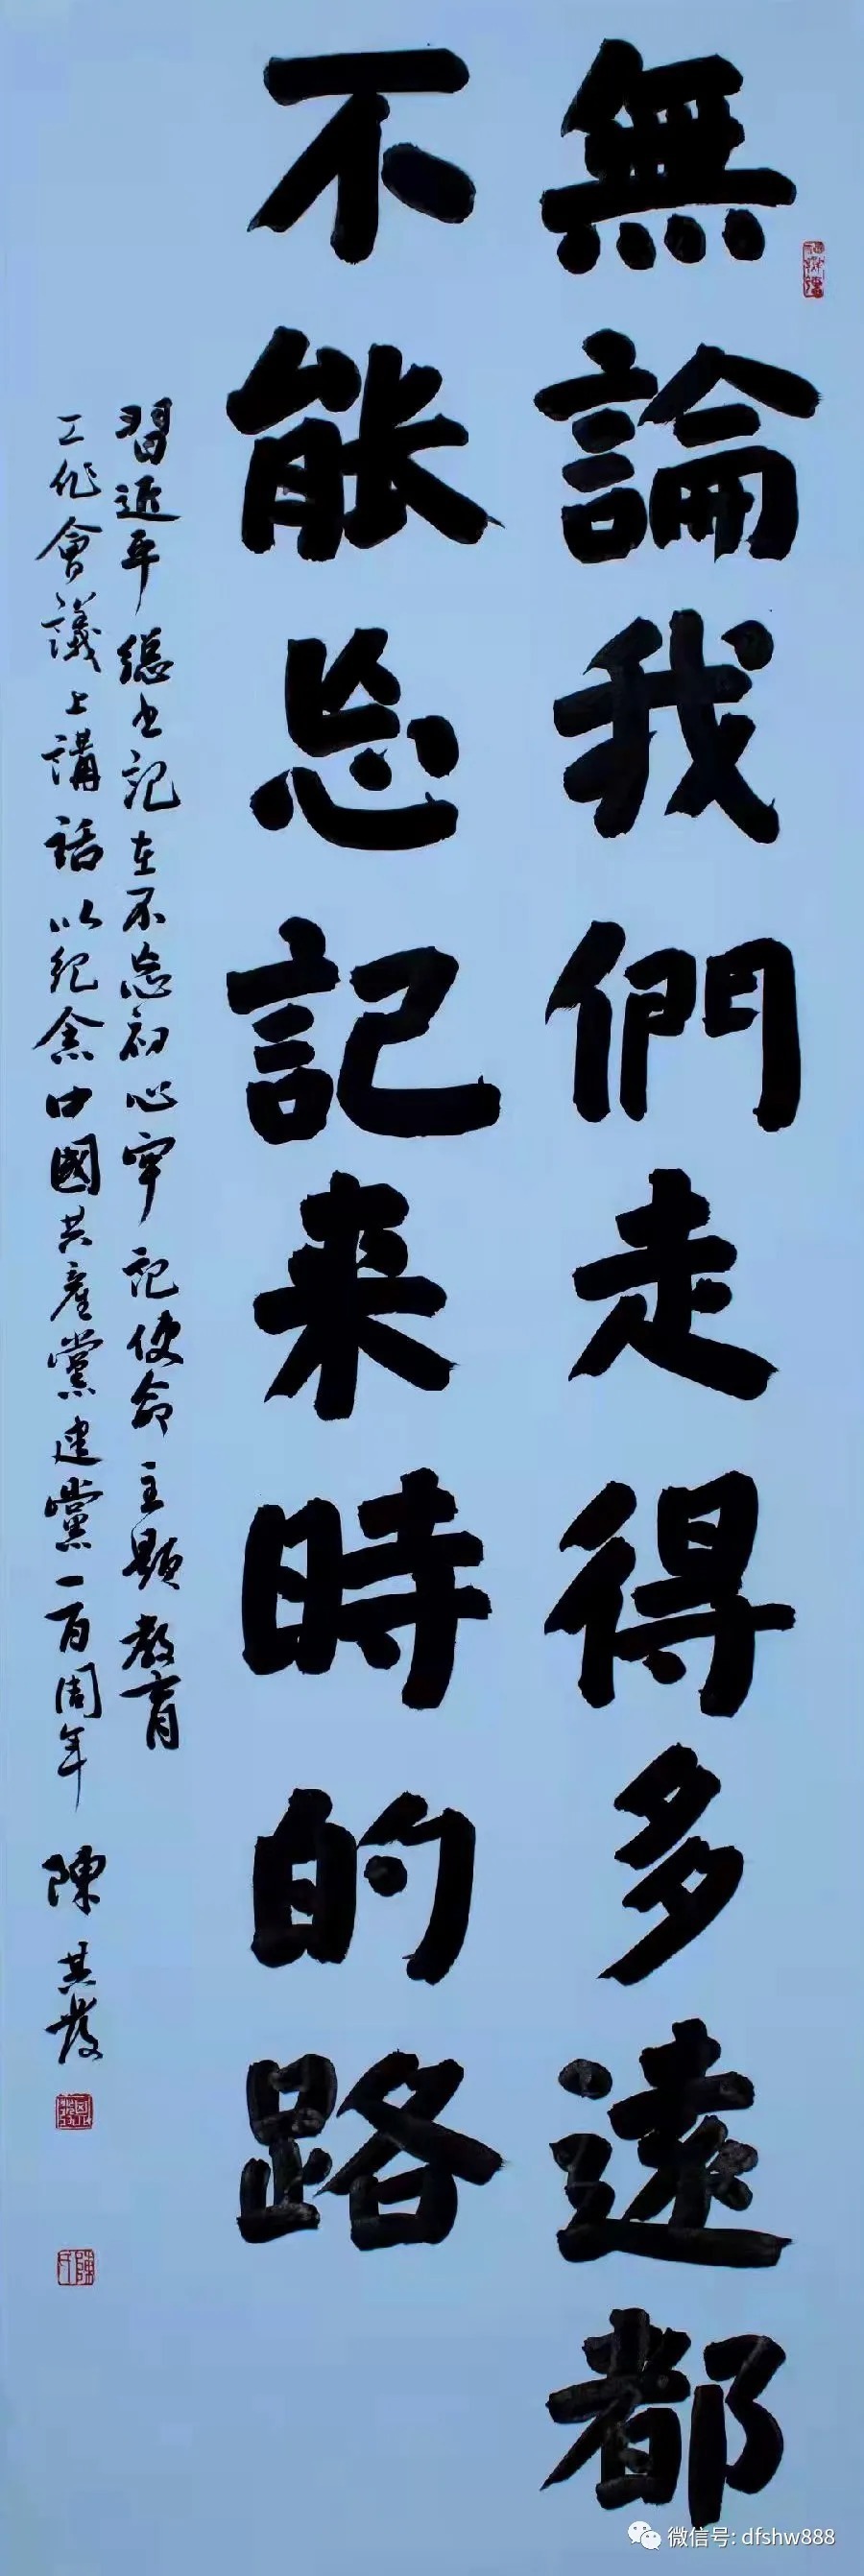 無論我們走得多遠都
不能忘記来時的路
習近平總書記在不忘初心牢記使命主題教育
工作會議上講話以紀念中國共產黨建黨一百周年
陳其發
微信号: dfshw888